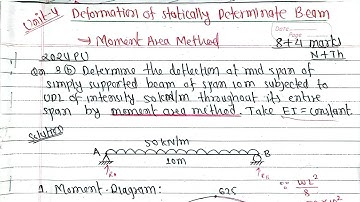 Unit-4 Deformation of statically Determinate Beam
→ Moment Area Method
Date
Page
8+4 marks
N+Th
2024 PU
Qn 3.(b) Determine the deflection at mid span of
simply supported beam of span 10m subjected to
UDL of intensity 50kN/m throughout its entire
span by moment area method. Take EI = constant
Solution
50kN/m
A B
10m
RA RB
1. Moment Diagram: 625 ∵ wL²/8